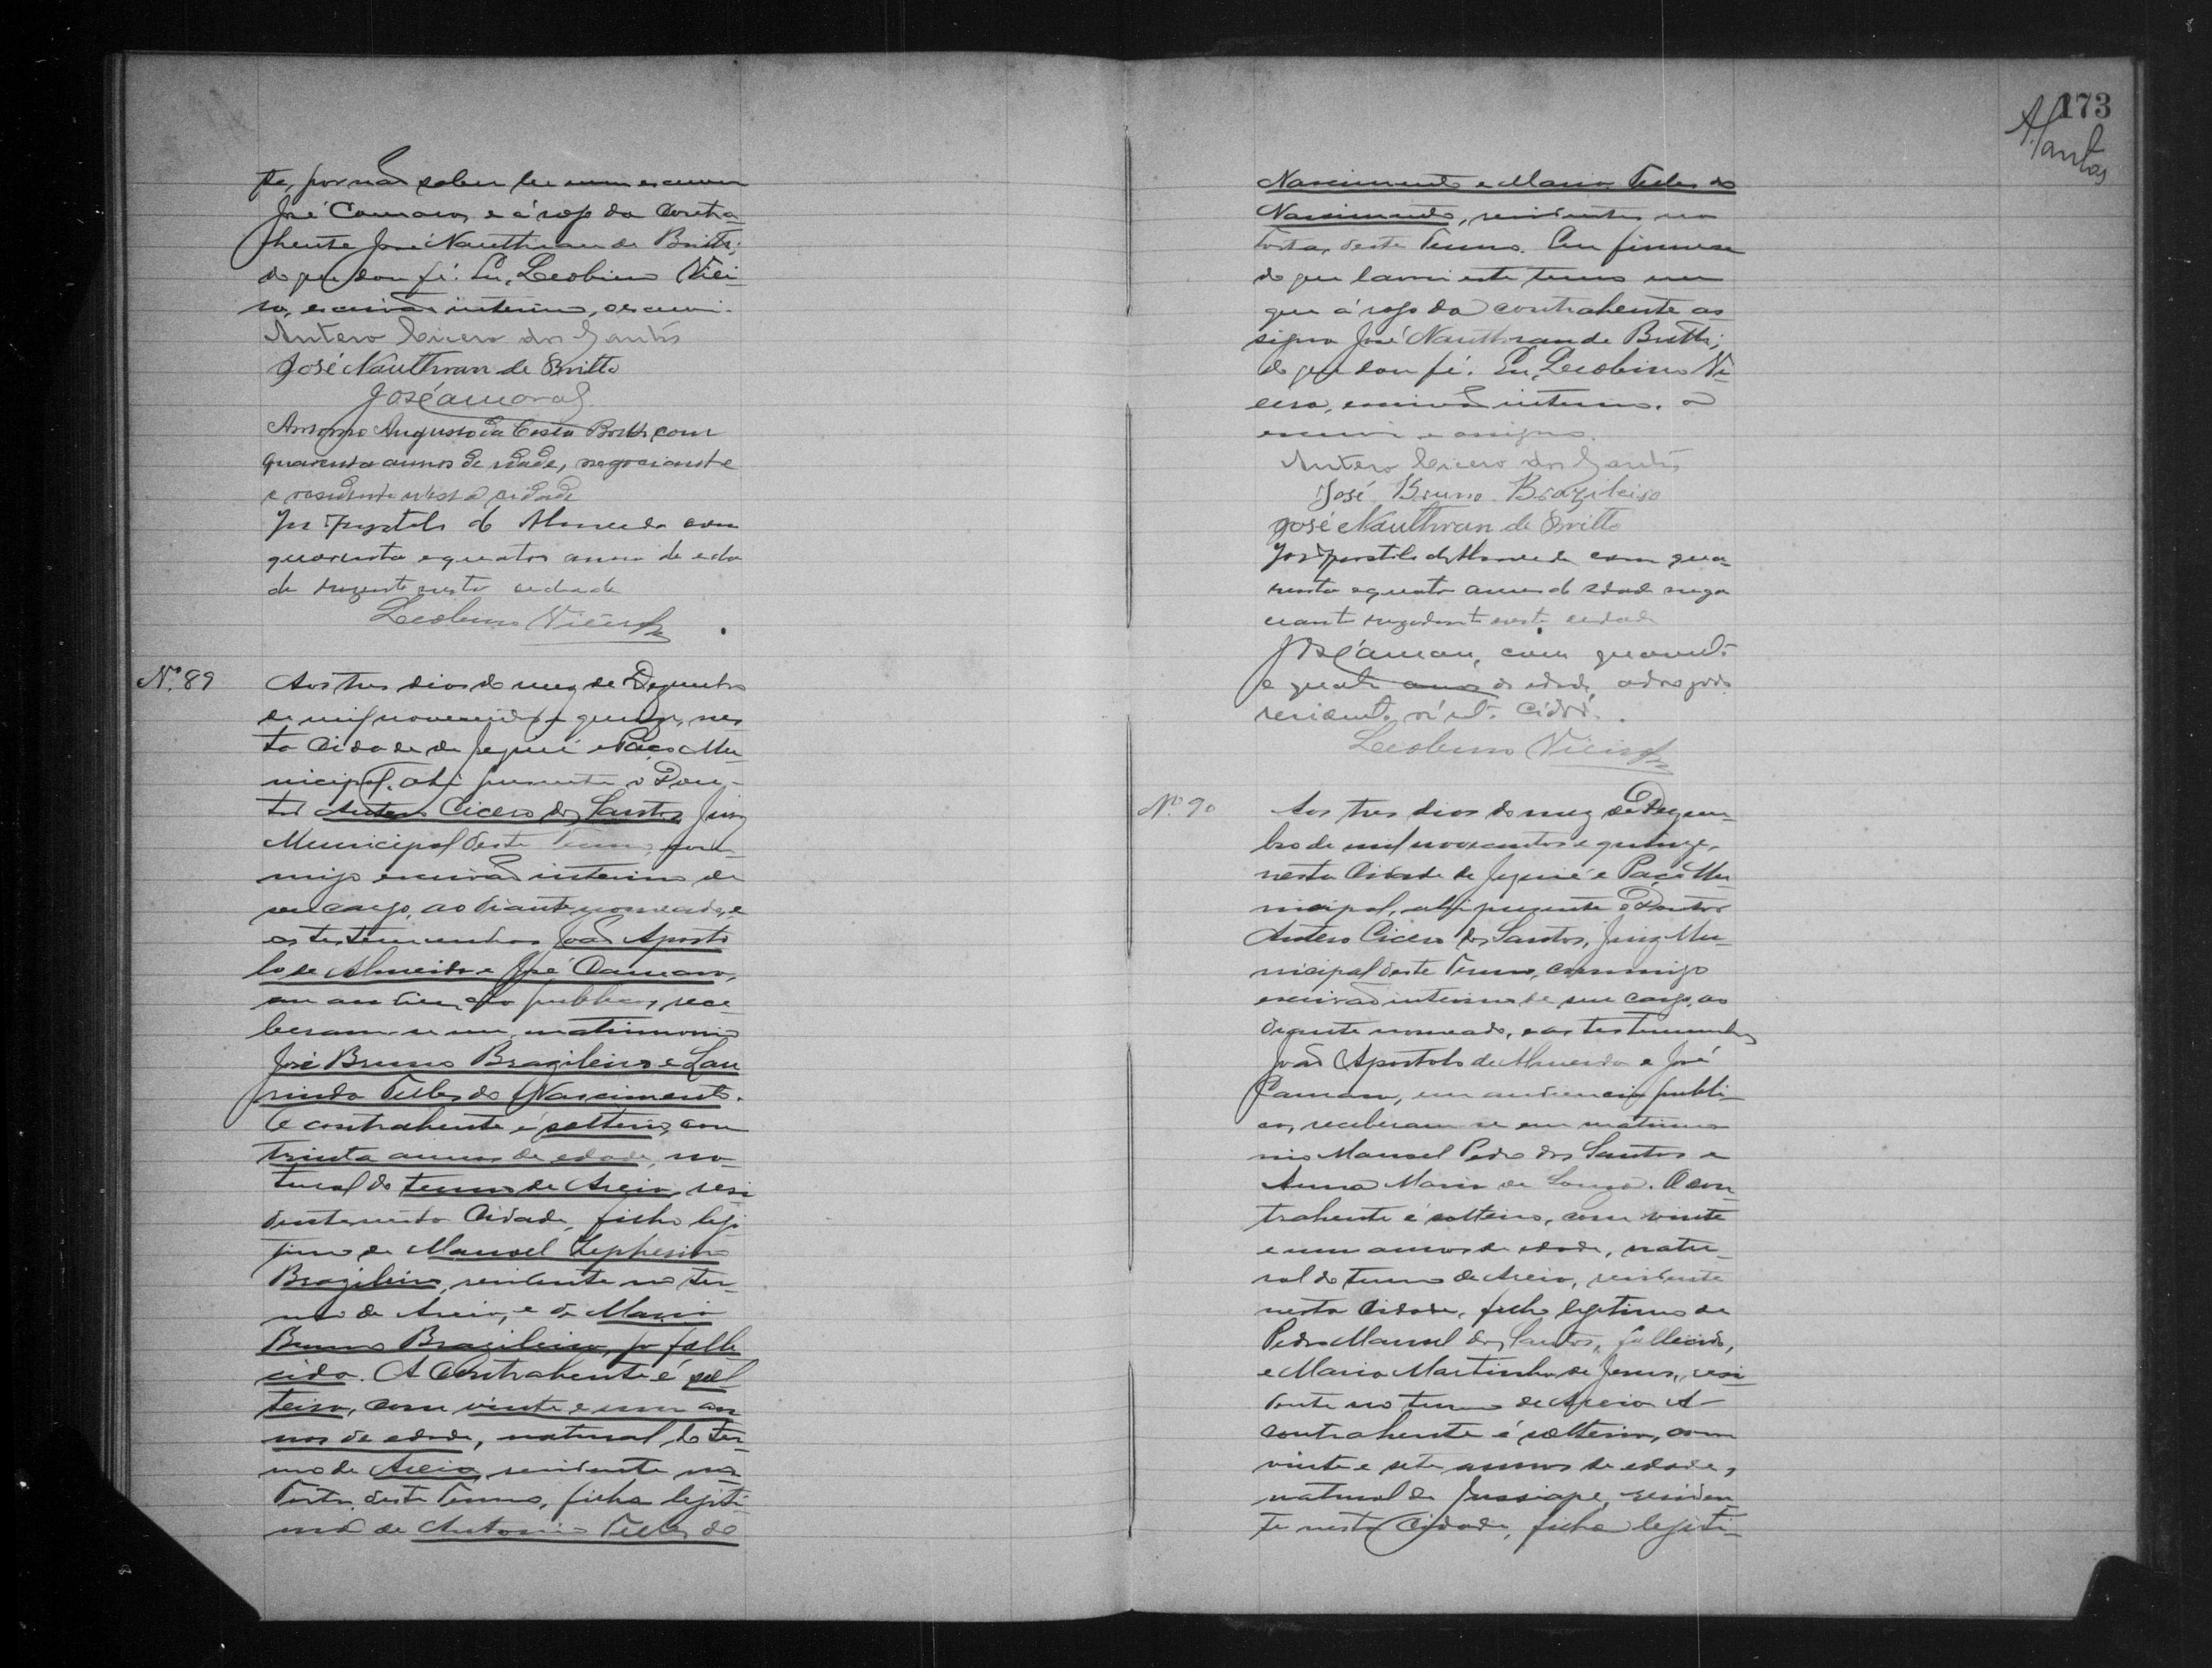 te, por não saber ler nem escrever
José Camarão, e á rogo da contra-
hente José Nauthran de Britto;
do que dou fé. Eu, Leobino Viei-
ra, escrivão interino, escrevi.
Antero Cicero dos Santos
José Nauthran de Britto
José Camarão
Antonio Augusto da Costa Britto, com
quarenta annos de idade, negociante
e residente nesta cidade
João Apostolo de Almeida com
quarenta e quatro annos de eda
de rezidente nesta cidade
Leobino Vieira
Nº 89
Aos tres dias do mez de Dezembro
de mil novecentos e quinze, nes
ta Cidade de Jequié e Paço Mu
nicipal, ahi presente o Dou-
tor Antero Cicero dos Santos Juiz
Municipal deste Termo, com-
migo escrivão interino de
seu cargo, ao diante nomeado, e
as testemunhas João Aposto
lo de Almeida e José Camarão,
em audiencia publica, rece
beram-se em matrimonio
José Bruno Brazileiro e Lau
rinda Telles do Nascimento.
O contrahente é solteiro, com
trinta annos de edade, na-
tural do termo de Areia, resi
dente nesta Cidade, filho legi
timo de Manoel Zepherino
Brazileiro, residente no ter-
mo de Areia, e de Maria
Bruno Brazileiro, ja falle
cida. A Contrahente é sol
teira, com vinte e um an
nos de edade, natural do ter-
mo de Areia, residente na
Tosta, deste Termo, filha legiti
ma de Antonio Telles do
173
ASantos
Nascimento e Maria Telles do
Nascimento, residentes na
Tosta, deste Termo. Em firmeza
do que lavrei este termo em
que á rogo da contrahente as
signa José Nauthran de Britto;
do que dou fé. Eu, Leobino Vi-
eira, escrivão interino. o
escrevi e assigno.
Antero Cicero dos Santos
José Bruno Brazileiro
José Nauthran de Britto
João Apostolo de Almeida com qua-
renta e quatro annos de edade nego
ciante rezidente nesta cidade
José Camarão, com quarenta
e quatro annos de edade,
residente n'esta Cidade.
Leobino Vieira
Nº 90
Aos tres dias do mez de Dezem-
bro de mil novecentos e quinze,
nesta Cidade de Jequié e Paço Mu-
nicipal, ahi presente o Doutor
Antero Cicero dos Santos, Juiz Mu-
nicipal deste Termo, commigo
escrivão interino de seu cargo, ao
diante nomeado, e as testemunhas
João Apostolo de Almeida e José
Camarão, em audiencia publi-
ca, receberam-se em matrimo
nio Manoel Pedro dos Santos e
Anna Maria de Souza. O con-
trahente é solteiro, com vinte
e um annos de edade, natu-
ral do termo de Areia, residente
nesta Cidade, filho legitimo de
Pedro Manoel dos Santos, fallecido,
e Maria Martinha de Jesus, resi
dente no termo de Areia. A
contrahente é solteira, com
vinte e sete annos de edade,
natural de Jussiape, residen
te nesta Cidade, filha legiti-